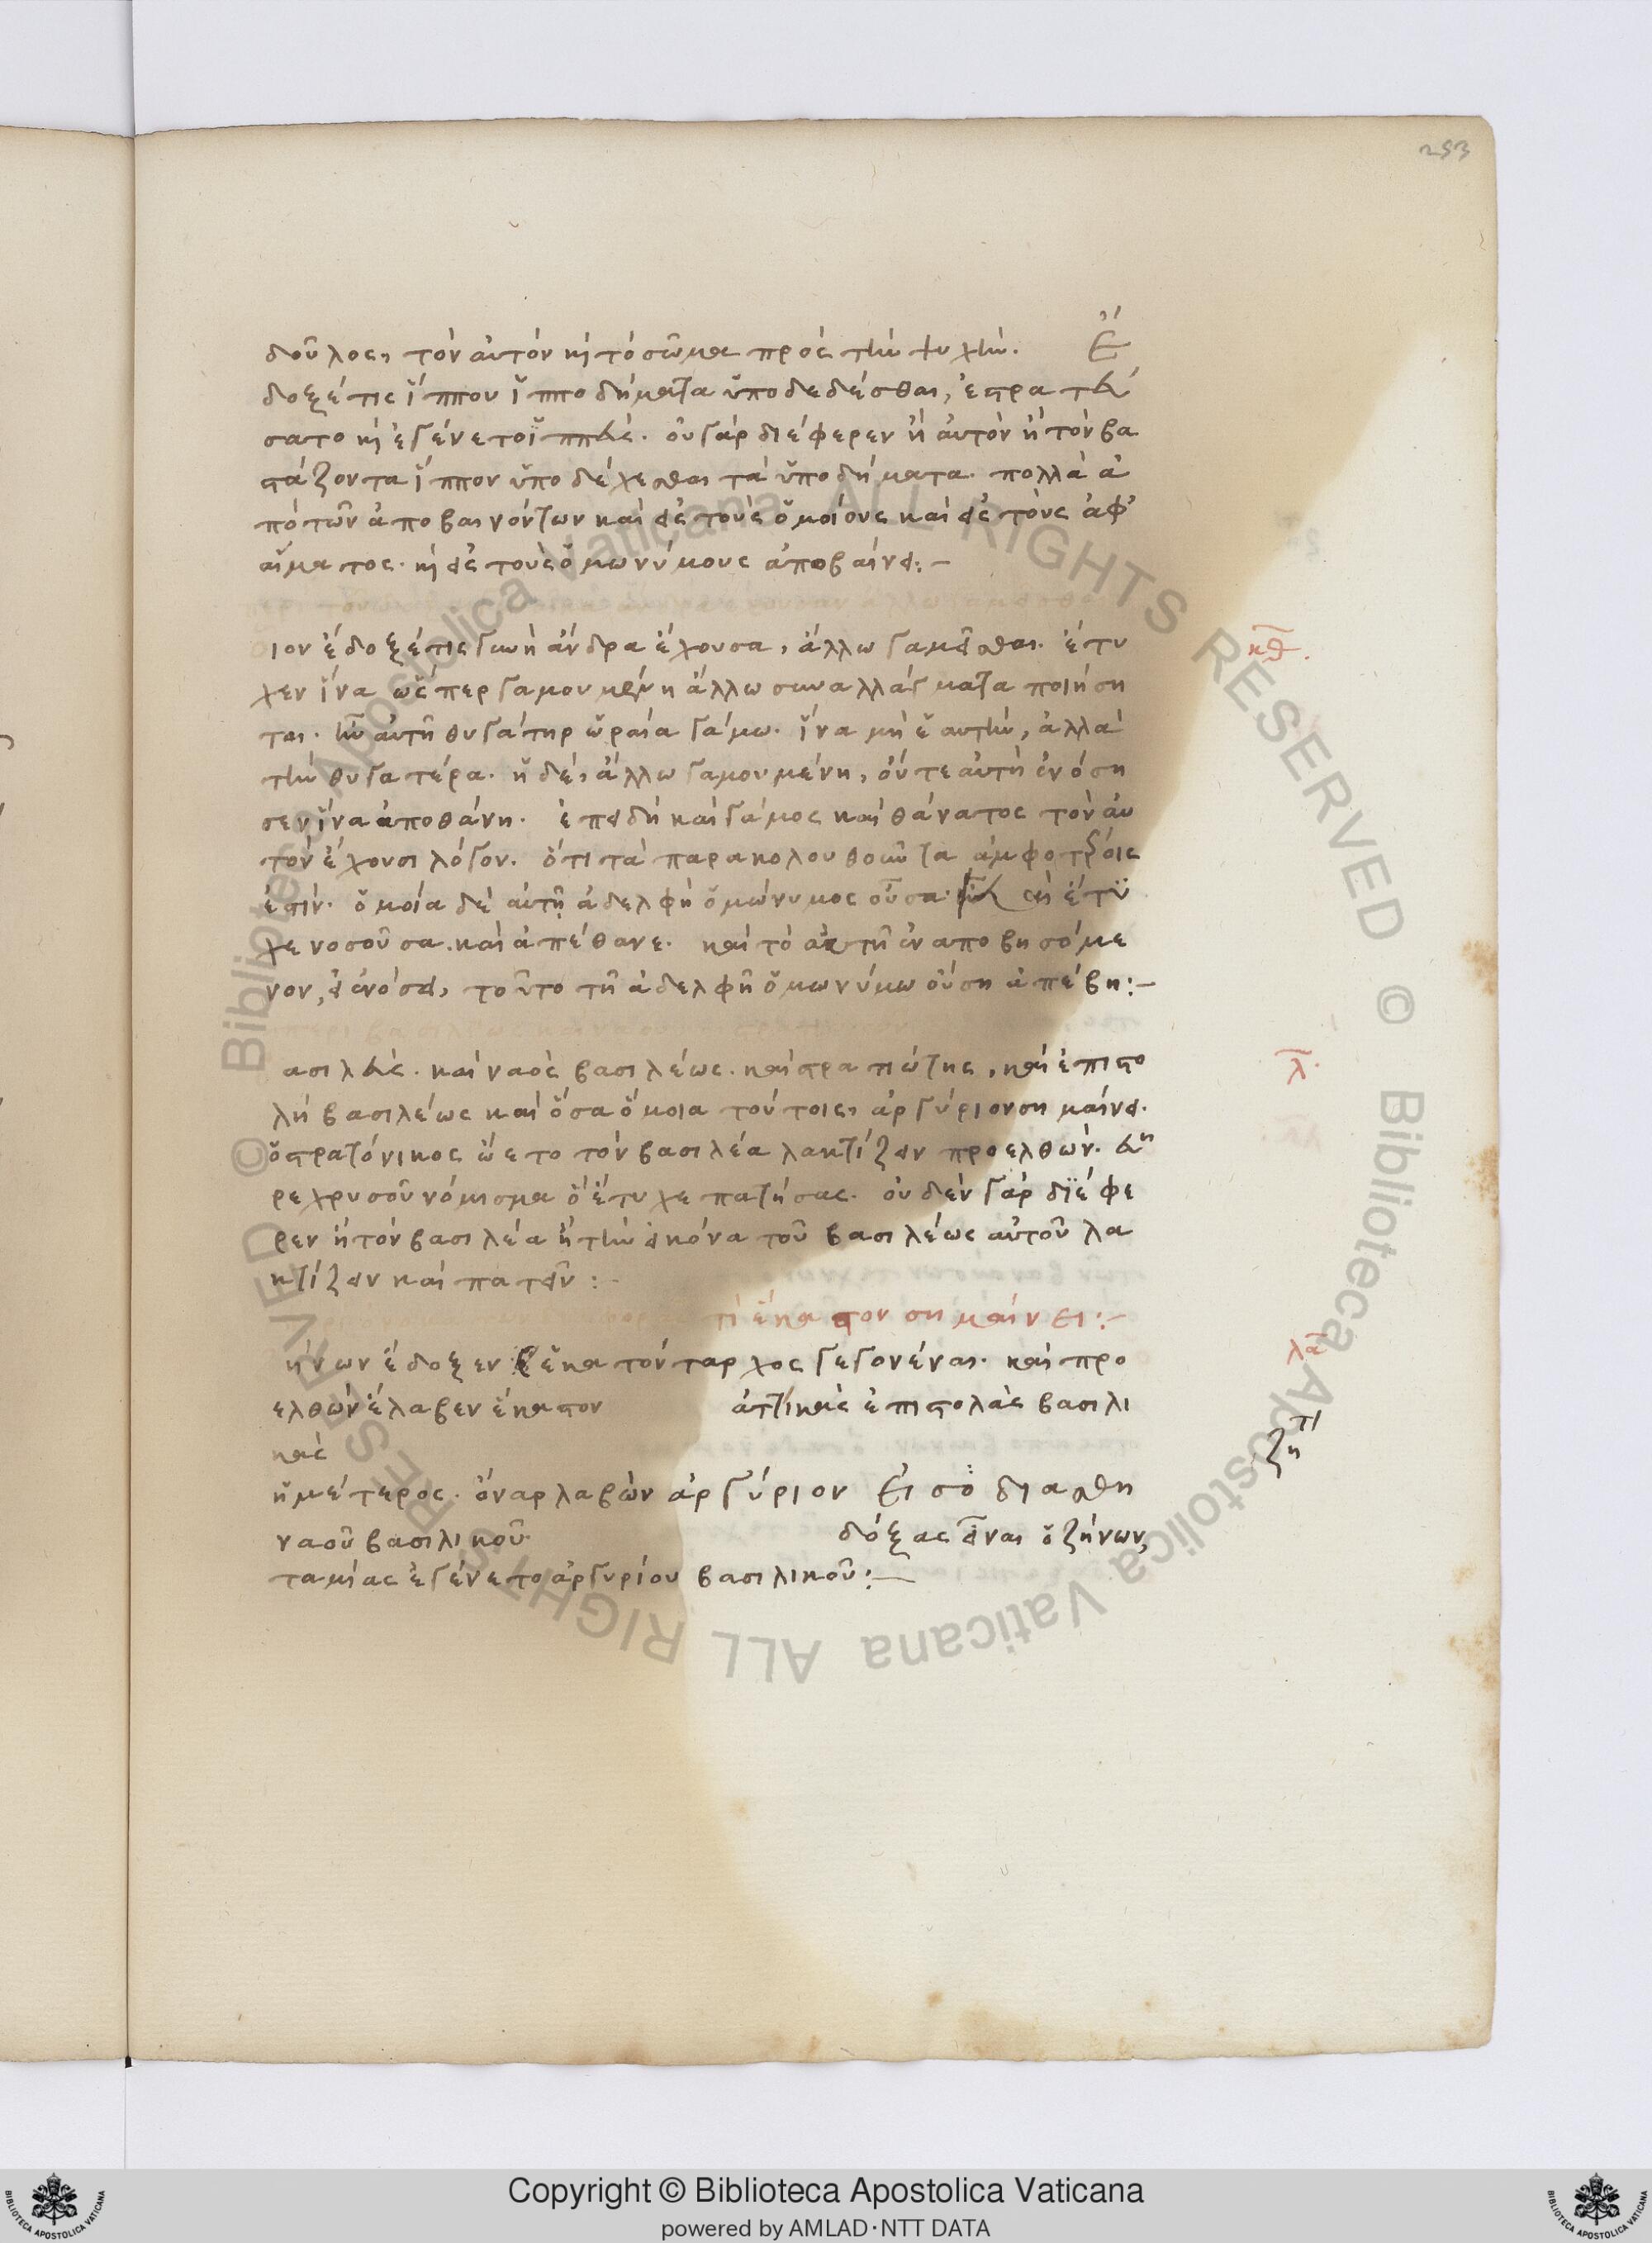 293
δοῦλος, τὸν αὐτὸν κὴ τὸ σῶμα πρὸς τὴν ψυχήν. Ἔ
δοξέ τις ἵππου ἱπποδήματα ὑποδεδέσθαι, ἐστρατεύ
σατο κὴ ἐγένετο ἱππεύς. οὐ γὰρ διέφερεν ἢ αὐτὸν ἢ τὸν βα
στάζοντα ἵππον ὑποδέχεσθαι τὰ ὑποδήματα. πολλὰ ἀ
πὸ τῶν ἀποβαινόντων καὶ εἰς τοὺς ὁμοίους καὶ εἰς τοὺς ἀφ'
αἵματος. κὴ εἰς τοὺς ὁμωνύμους ἀποβαίνει:-
οιον ἔδοξέ τις γυνὴ ἄνδρα ἔχουσα, ἄλλω γαμεῖσθαι. ἔτυ
χεν ἵνα ὥσπερ γαμουμένη ἄλλω συναλλάγματα ποιήση
ται. ἦν αὐτῆ θυγάτηρ ὡραία γάμω. ἵνα μὴ ἑαυτὴν, ἀλλὰ
τὴν θυγατέρα. ἡ δὲ, ἄλλω γαμουμένη, οὔτε αὐτὴ ἐνόση
σεν ἵνα ἀποθάνη. ἐπειδὴ καὶ γάμος καὶ θάνατος τὸν αὐ
τὸν ἔχουσι λόγον. ὅτι τὰ παρακολουθοῦντα ἀμφοτέροις
ἐστίν. ὁμοία δὲ αὐτῆ ἀδελφὴ ὁμώνυμος οὖσα κὴ ἔτυ
χε νοσοῦσα. καὶ ἀπέθανε. καὶ τὸ αὐτῆ ἂν ἀποβησόμε
νον, εἰ ἐνόσει, τοῦτο τῆ ἀδελφῆ ὁμωνύμω οὔση ἀπέβη:-
ασιλεὺς. καὶ ναὸς βασιλέως. καὶ στρατιώτης, καὶ ἐπιστο
λὴ βασιλέως καὶ ὅσα ὅμοια τούτοις, ἀργύριον σημαίνει.
ὁ στρατόνικος ὤετο τὸν βασιλέα λακτίζειν προελθὼν. εὗ
ρε χρυσοῦν νόμισμα ὃ ἔτυχε πατήσας. οὐδὲν γὰρ διέφε
ρεν ἢ τὸν βασιλέα ἢ τὴν εἰκόνα τοῦ βασιλέως αὐτοῦ λα
κτίζειν καὶ πατεῖν:-
τί ἕκαστον σημαίνει:-
ήνων ἔδοξεν ἑκατόνταρχος γεγονέναι. καὶ προ
ελθὼν ἔλαβεν ἕκαστον ἀττικὰς ἐπιστολὰς βασιλι
κὰς
ἡμέτερος. ὄναρ λαβὼν ἀργύριον εισο διασθη
ναοῦ βασιλικοῦ. δόξας εἶναι ὁ ζήνων,
ταμίας ἐγένετο ἀργυρίου βασιλικοῦ:-
κθ.
λ.
λα
ζητι
Copyright © Biblioteca Apostolica Vaticana
powered by AMLAD·NTT DATA
BIBLIOTECA APOSTOLICA VATICANA
© Biblioteca Apostolica Vaticana ALL RIGHTS RESERVED © Biblioteca Apostolica Vaticana ALL RIGHTS RESERVED